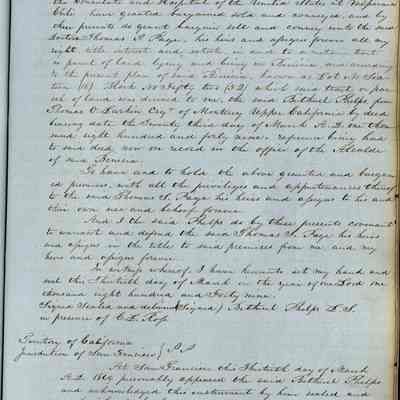 the Consulate and Hospital of the United States at Valparaiso
Chili have granted bargained sold and conveyed, and by
these presents do grant bargain sell and convey unto the said
Doctor Thomas S. Page, his heirs and assigns forever all my
right title interest and estate, in and to a certain tract
or parcel of land lying and being in Benicia and according
to the present plan of said Benicia, known as Lot No Six-
teen (16) Block No Fifty two (52) which said tract or par-
cel of land was deeded to me, the said Bethuel Phelps from
Thomas O. Larkin Esqr of Monterey Upper California by deed
bearing date the Twenty third day of March A.D. one thou-
sand eight hundred and forty nine; reference being had
to said deed, now on record in the office of the Alcalde
of said Benicia.
To have and to hold the above granted and bargain-
ed premises, with all the privileges and appurtenances thereof
to the said Thomas S. Page his heirs and assigns to his and
their own use and behoof forever.
And I the said Phelps do by these presents covenant
to warrant and defend the said Thomas S. Page his heirs
and assigns in the title to said premises from me and my
heirs and assigns forever.
In witness whereof I have hereunto set my hand and
seal this Thirtieth day of March in the year of our Lord one
thousand eight hundred and Forty nine.
Signed Sealed and delivered (Signed) Bethuel Phelps L.S.
in presence of C.L. Ross
Territory of California
Jurisdiction of San Francisco } S.S.
At San Francisco this Thirtieth day of March
A.D. 1849 personally appeared the said Bethuel Phelps
and acknowledged this instrument by him sealed and